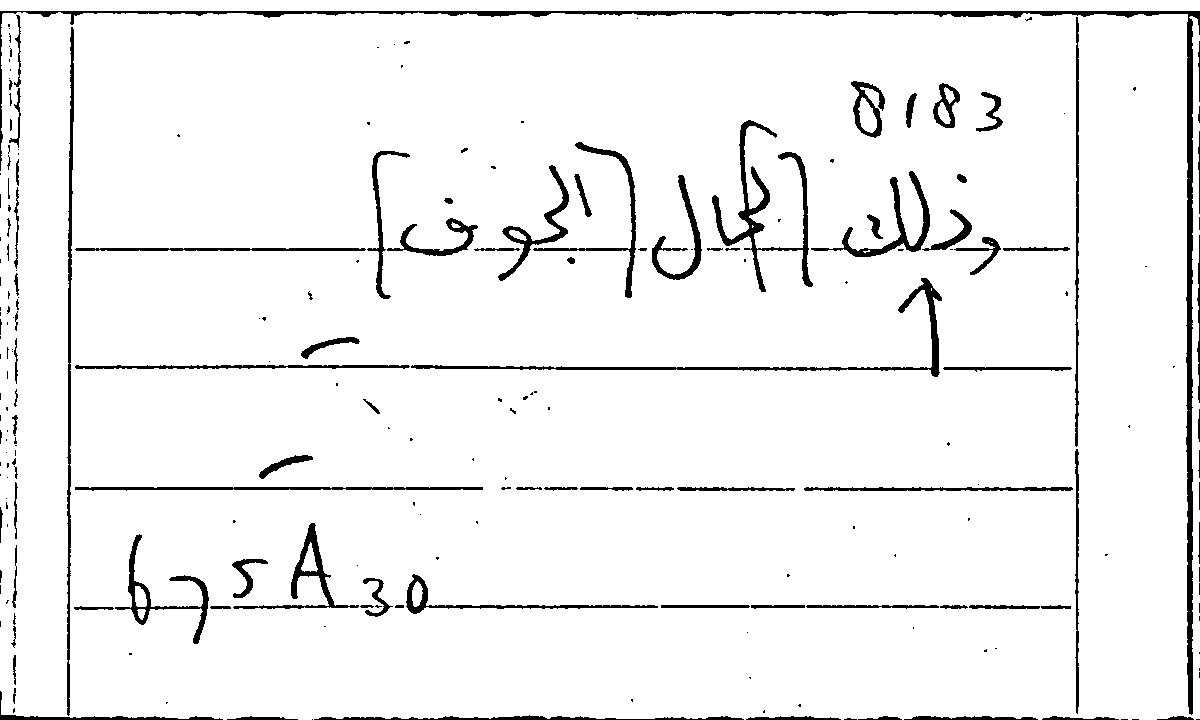 8183
وذلك [المجال] [الجوف]
675A30